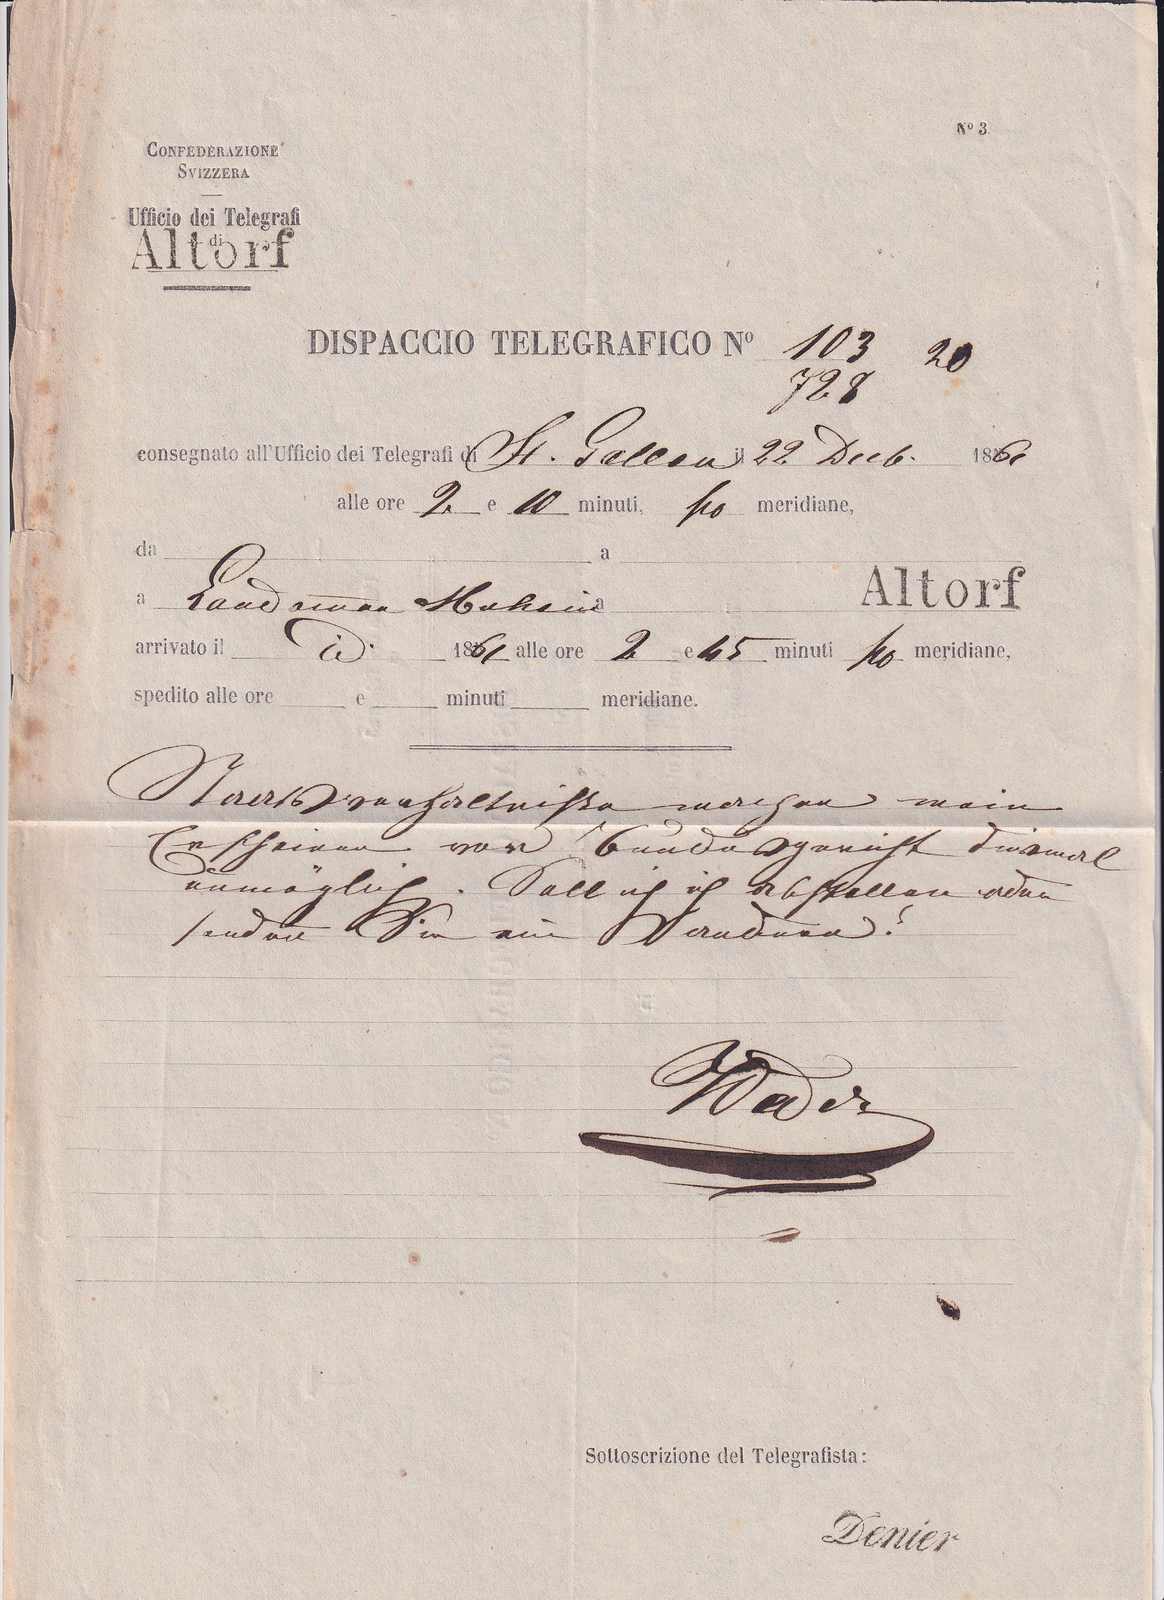 Nº 3
CONFEDERAZIONE
SVIZZERA
Ufficio dei Telegrafi
di
Altorf
DISPACCIO TELEGRAFICO Nº 103 20
728
consegnato all'Ufficio dei Telegrafi di St. Gallen il 22 Decb. 1861
alle ore 2 e 10 minuti, po meridiane,
da a
a Landaman a Altorf
arrivato il id. 1861 alle ore 2 e 45 minuti po meridiane,
spedito alle ore e minuti meridiane.
machen mein
Erscheinen vor Bundesgericht diesmal
unmöglich. Soll ich abstellen oder
senden Sie ein Anderen?
Sottoscrizione del Telegrafista:
Denier